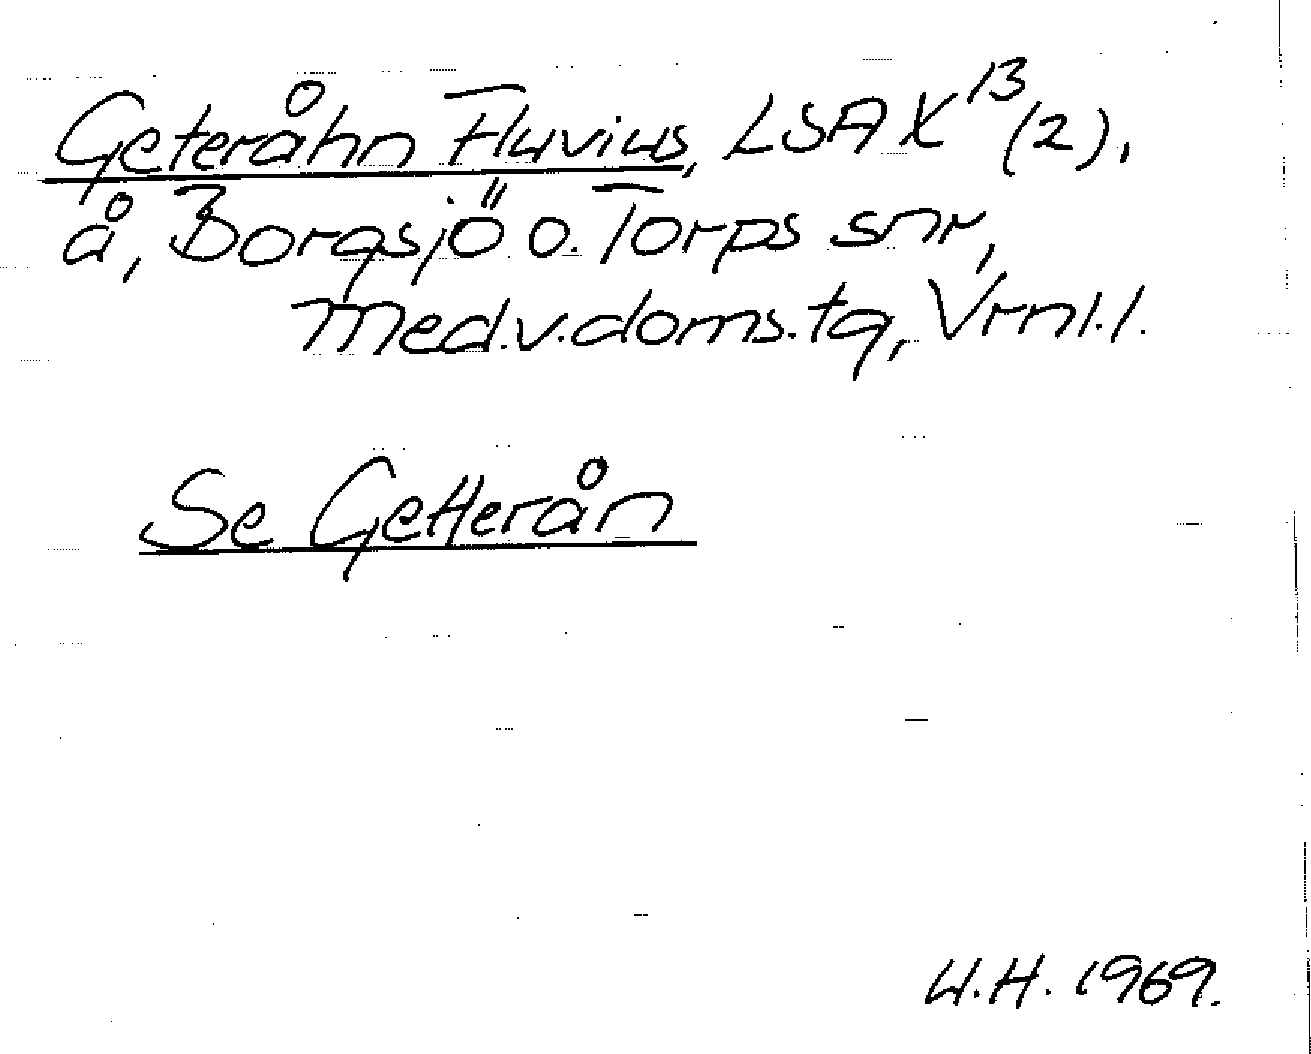 Geteråhn Fluvius, LSA X¹³ (2),
å, Borgsjö o. Torps snr,
Med.v.doms.tg, Vrnl.l.
Se Getterån
U.H. 1969.